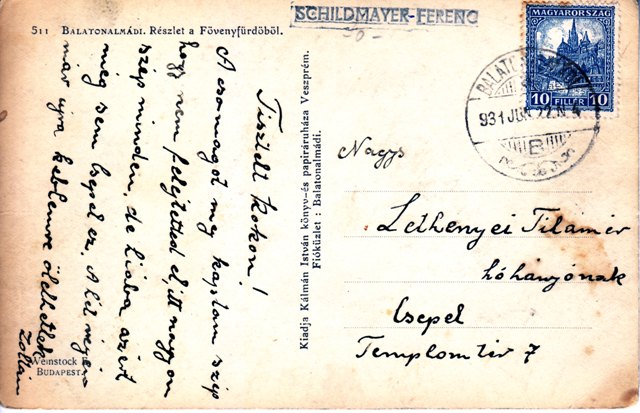 511 BALATONALMÁDI. Részlet a Fövenyfürdöböl.
SCHILDMAYER-FERENC
MAGYARORSZÁG
10 FILLÉR 10
931 JUN 22
B
Tisztelt Kokon!
A csomagot meg kaptam szép
hogy nem felejtetted el, itt nagyon
szép minden, de hiába azért
még sem Csepel ez. A hét végén
már újra keblemre ölelhetlek
Zoltán
Weinstock
BUDAPEST
Kiadja Kálmán István könyv-és papiráruháza Veszprém.
Fióküzlet : Balatonalmádi.
Nagys
Lethenyei Tihamér
hóhányónak
Csepel
Templom tér 7